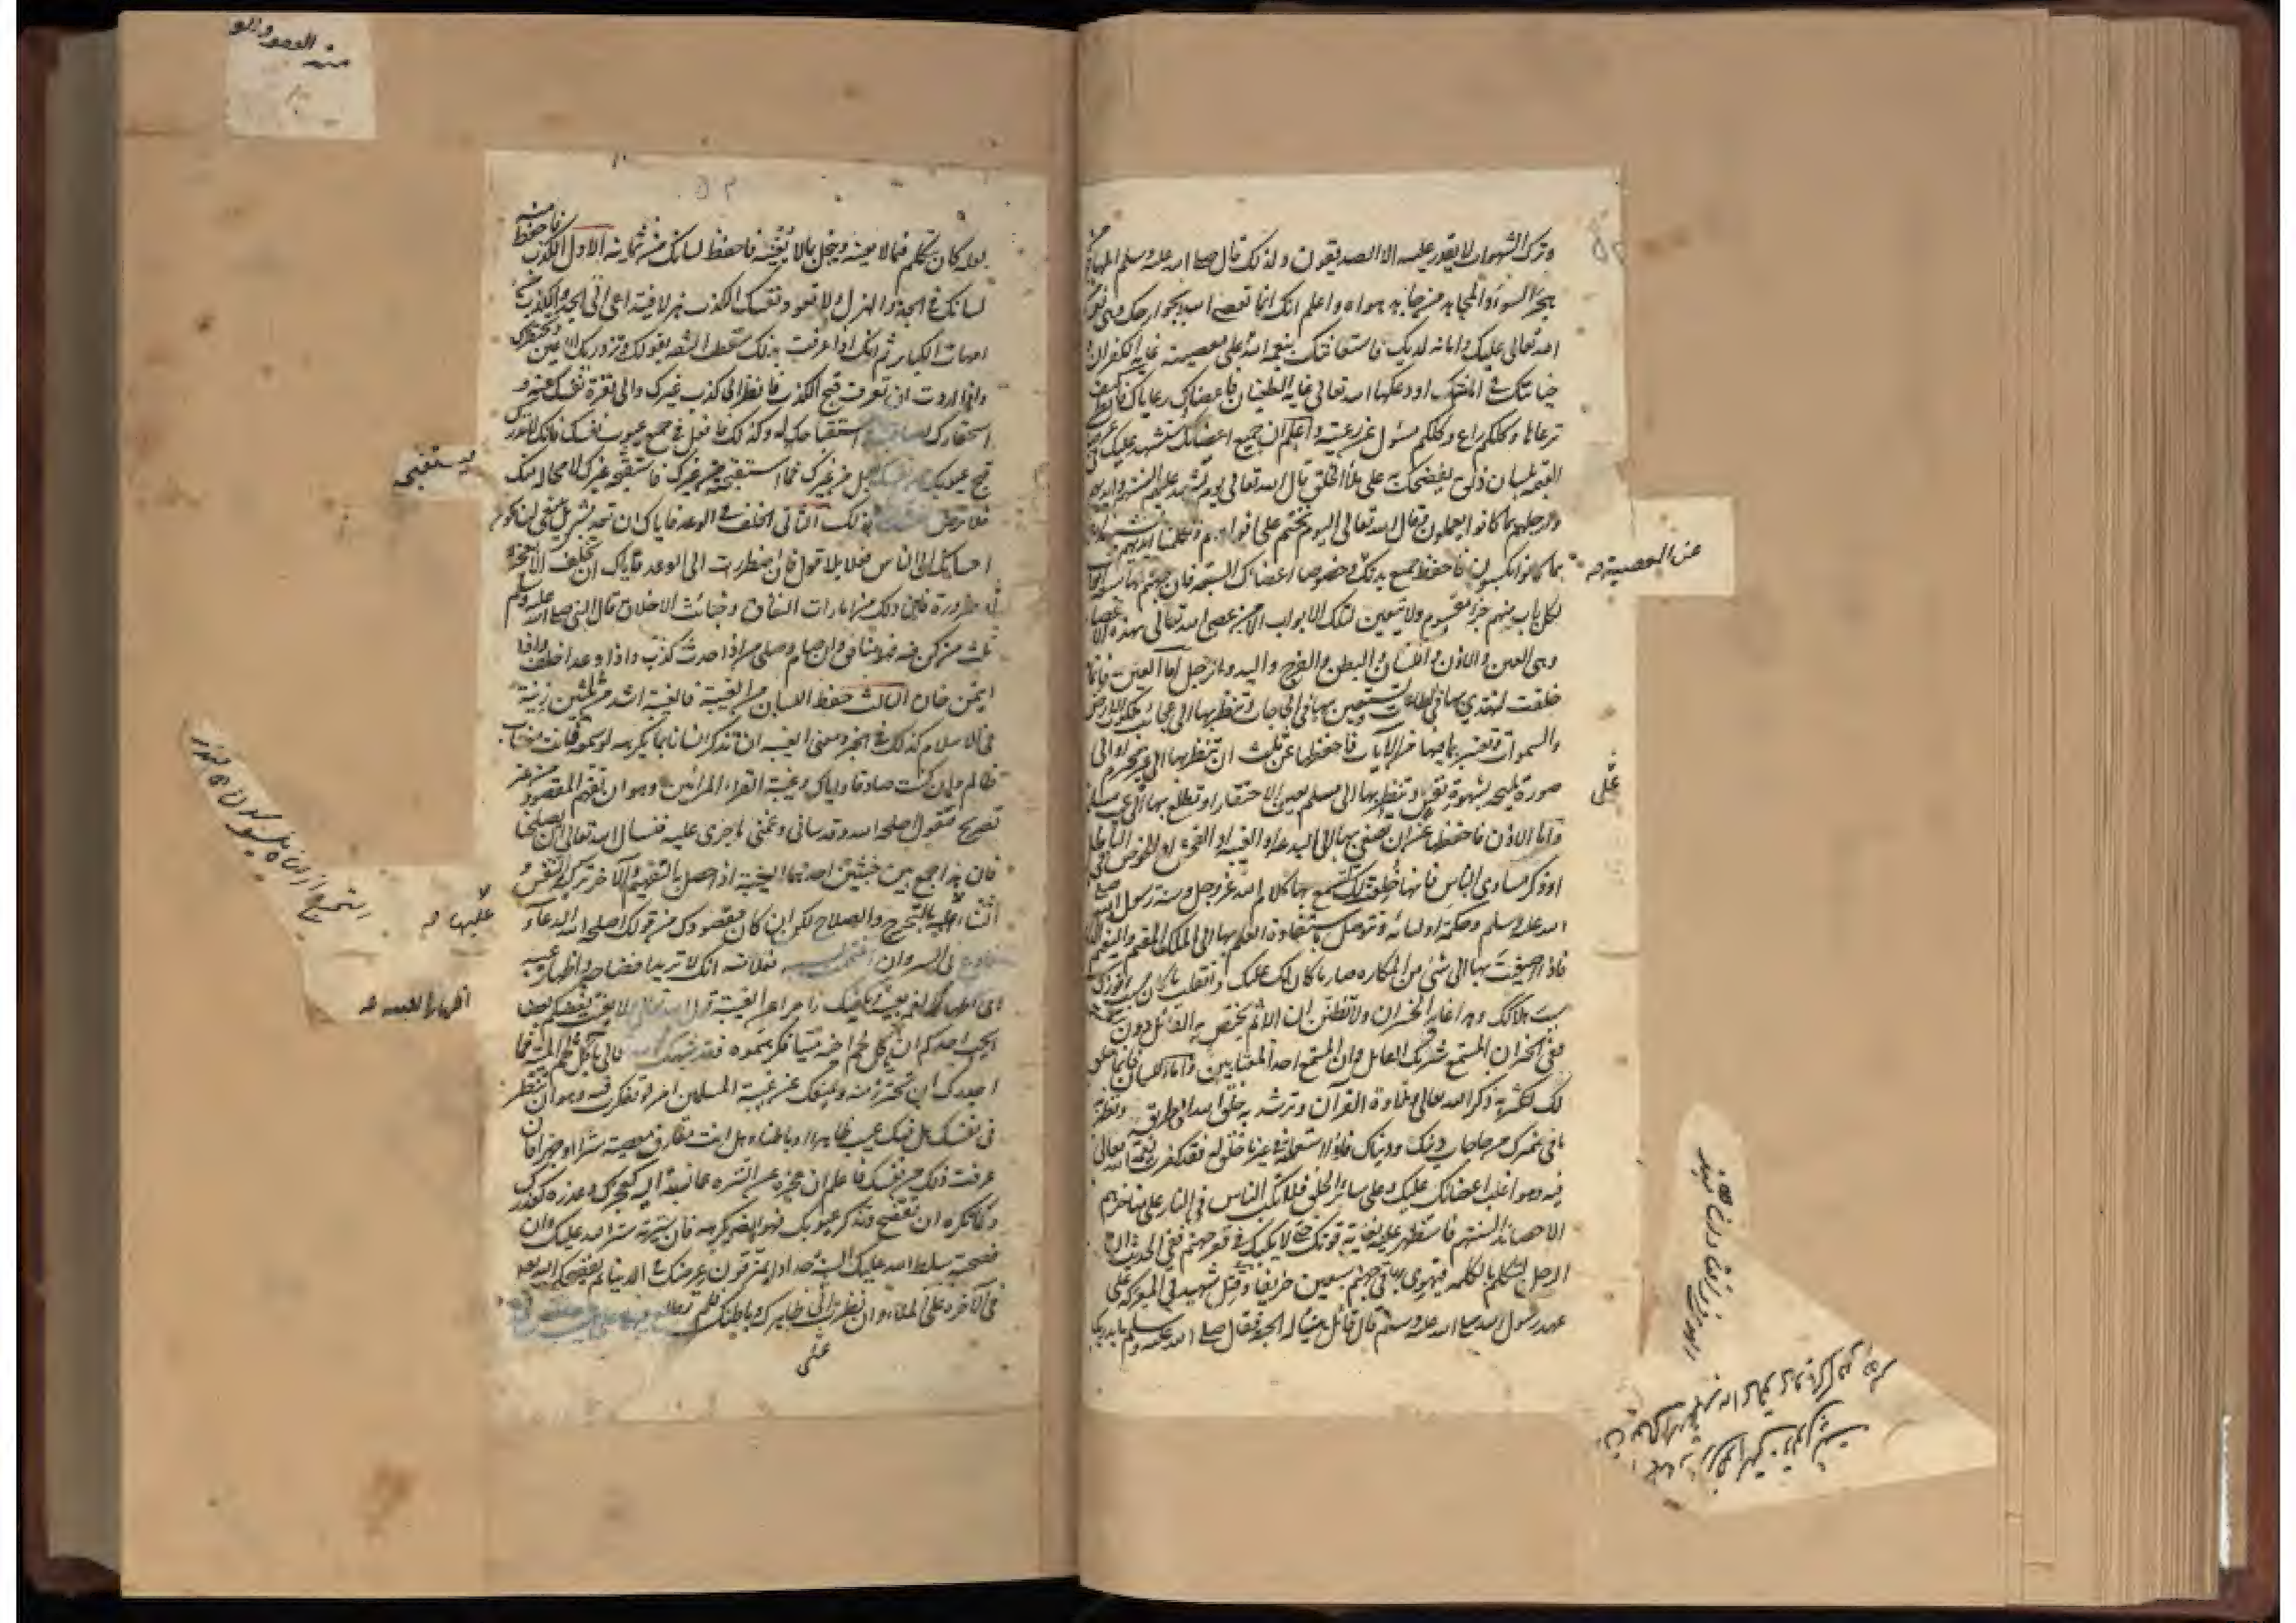 وترك الشهوات لا يقدر عليه الا الصديقون ولذلك قال صلى الله عليه وسلم المهاجر
من هجر السوء والمجاهد من جاهد هواه واعلم انك انما تعصى الله بجوارحك وهى نعمة
الله تعالى عليك وامانة لديك فاستعانتك بنعمة الله على معصيته غاية الكفران و
خيانتك فى امانتك اودعكها الله تعالى غاية الطغيان فاعضاؤك رعاياك فانظر كيف
ترعاها وكلكم راع وكلكم مسئول عن رعيته واعلم ان جميع اعضائك ستشهد عليك فى
القيمة بلسان ذلق يفضحك على ملأ الخلق قال الله تعالى يوم تشهد عليهم السنتهم وايديهم
وارجلهم بما كانوا يعملون وقال الله تعالى اليوم نختم على افواههم وتكلمنا ايديهم وتشهد
بما كانوا يكسبون فاحفظ جميع بدنك وخصوصا اعضاك السبعة فان جهنم لها سبعة ابواب
لكل باب منهم جزء مقسوم ولا يتعين لتلك الابواب الا من عصى الله تعالى بهذه الاعضاء
وهى العين والاذن واللسان والبطن والفرج واليد والرجل اما العين فانما
خلقت لتهتدى بها فى الظلمات وتستعين بها فى الحاجات وتنظر بها الى عجائب ملكوت الارض
والسموات وتعتبر بما فيها من الايات فاحفظها عن ثلث ان تنظر بها الى غير محرم او الى
صورة مليحة بشهوة نفس وتنظر بها الى مسلم بعين الاحتقار او تطلع بها الى عيب مسلم
واما الاذن فاحفظها عن ان تصغى بها الى البدعة او الغيبة او الفحش او الخوض فى الباطل
او ذكر مساوى الناس فانها خلقت لك لتسمع بها كلام الله عز وجل وسنة رسول الله صلى
الله عليه وسلم وحكمة اوليائه وتتوصل باستفادة العلم بها الى الملك المقيم والنعيم
فاذا اصغيت بها الى شئ من المكاره صار ما كان لك عليك وانقلب ما كان سبب فوزك
سبب هلاكك وهذا غاية الخسران ولا تظنن ان الاثم يختص به القائل دون المستمع
ففى الخبر ان المستمع شريك القائل وان المستمع احد المغتابين واما اللسان فانما خلق
لك لتكثر به ذكر الله تعالى وتلاوة القرآن وترشد به خلق الله الى طريقه وتظهر
ما فى ضميرك من حاجات دينك ودنياك فاذا استعملته فى غير ما خلق له فقد كفرت نعمة الله تعالى
فيه وهو اغلب اعضائك عليك وعلى سائر الخلق فلا يكب الناس فى النار على مناخرهم
الا حصائد السنتهم فاستظهر عليه بغاية قوتك حتى لا يكبك فى قعر جهنم ففى الحديث ان
الرجل ليتكلم بالكلمة فيهوى بها فى جهنم سبعين خريفا وقتل شهيد فى المعركة على
عهد رسول الله صلى الله عليه وسلم قال قائل هنيئا له الجنة فقال صلى الله عليه وسلم ما يدريك
عن المعصية صح
على
لعله كان يتكلم فيما لا يعنيه ويبخل بما لا يغنيه فاحفظ لسانك من ثمانية الاول الكذب فاحفظ منه
لسانك فى الجد والهزل ولا تعود نفسك الكذب هزلا فيتداعى الى الجد والكذب من
امهات الكبائر ثم انك اذا عرفت بذلك سقطت الثقة بقولك وتزدريك الاعين وتحتقرك
واذا اردت ان تعرف قبح الكذب فانظر الى كذب غيرك والى نفرة نفسك عنه و
استحقارك لصاحبه استقباحك له وكذلك فافعل فى جميع عيوب نفسك فانك لا تدرى
قبح عيوبك من نفسك بل من غيرك فما استقبحته من غيرك فاستقبحه غيرك لا محالة منك
فلا ترض لنفسك ذلك الثانى الخلف فى الوعد فاياك ان تعد بشئ بل ينبغى ان يكون
احسانك الى الناس فعلا بلا قول فان اضطررت الى الوعد فاياك ان تخلف الا لعجز
او ضرورة فان ذلك من امارات النفاق وخبائث الاخلاق قال النبى صلى الله عليه وسلم
ثلث من كن فيه فهو منافق وان صام وصلى من اذا حدث كذب واذا وعد اخلف واذا
ايتمن خان الثالث حفظ اللسان من الغيبة فالغيبة اشد من ثلثين زنية
فى الاسلام كذلك فى الخبر ومعنى الغيبة ان تذكر انسانا بما يكرهه لو سمعه فانت مغتاب
ظالم وان كنت صادقا واياك وغيبة القراء المرائين وهو ان تفهم المقصود من غير
تصريح فتقول اصلحه الله وقد ساءنى وغمنى ما جرى عليه فنسال الله تعالى ان يصلحنا
فان هذا جمع بين خبيثين احدهما الغيبة اذا حصل به التفهيم والآخر تزكية النفس و
الثناء عليه بالتحرج والصلاح لكن ان كان مقصودك من قولك اصلحه الله الدعاء
فادع له فى السر وان اغتممت بسببه فعلامته انك لا تريد افضاحه واظهار عيبه
اى اظهار الغم بعيبه ويكفيك زاجرا عن الغيبة قول الله تعالى ولا يغتب بعضكم بعضا
ايحب احدكم ان ياكل لحم اخيه ميتا فكرهتموه فقد شبهك الله تعالى باكل لحم الميتة فما
اجدرك ان تحترز منه ويمنعك عن غيبة المسلمين امر لو تفكرت فيه وهو ان تنظر
فى نفسك هل فيك عيب ظاهرا او باطنا وهل انت مقارف معصية سرا او جهرا فان
عرفت ذلك من نفسك فاعلم ان عجزه عن التنزه عما نسبته اليه كعجزك وعذره كعذرك
وكما تكره ان تفتضح وتذكر عيوبك فهو ايضا يكرهه فان سترته ستر الله عليك وان
فضحته سلط الله عليك السنة حدادا يمزقون عرضك فى الدنيا ثم يفضحك الله تعالى
فى الآخرة على الملأ وان نظرت الى ظاهرك وباطنك فلم تطلع فيهما على عيب
على
يستقبح
عليها صح
اظهار الغيبة صح